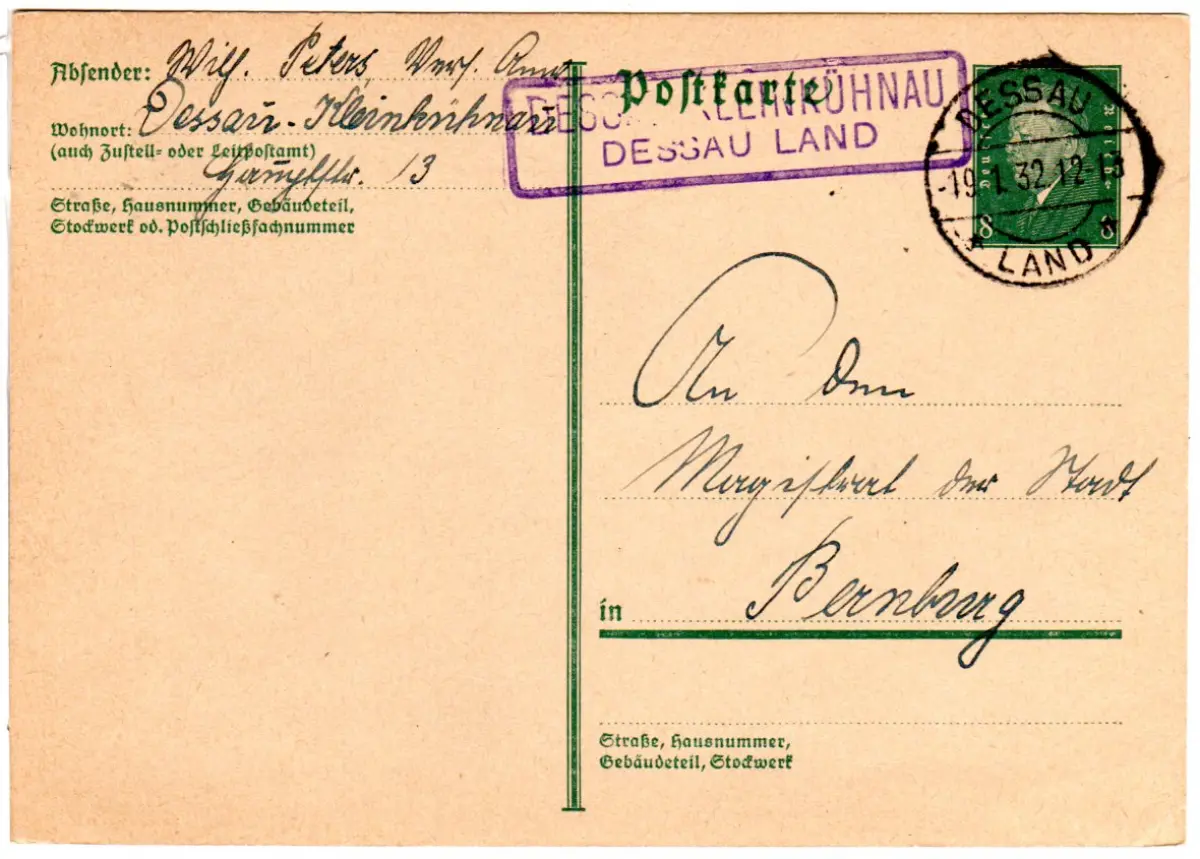 Absender: Wilh. Peters, Vers. Anw
Wohnort: Dessau-Kleinkühnau
(auch Zustell- oder Leitpostamt)
Hauptstr. 13
Straße, Hausnummer, Gebäudeteil,
Stockwerk od. Postschließfachnummer
Postkarte
DESSAU-KLEINKÜHNAU
DESSAU LAND
DESSAU
-19.1.32.12-13
* LAND *
8 8
An den
Magistrat der Stadt
in Bernburg
Straße, Hausnummer,
Gebäudeteil, Stockwerk